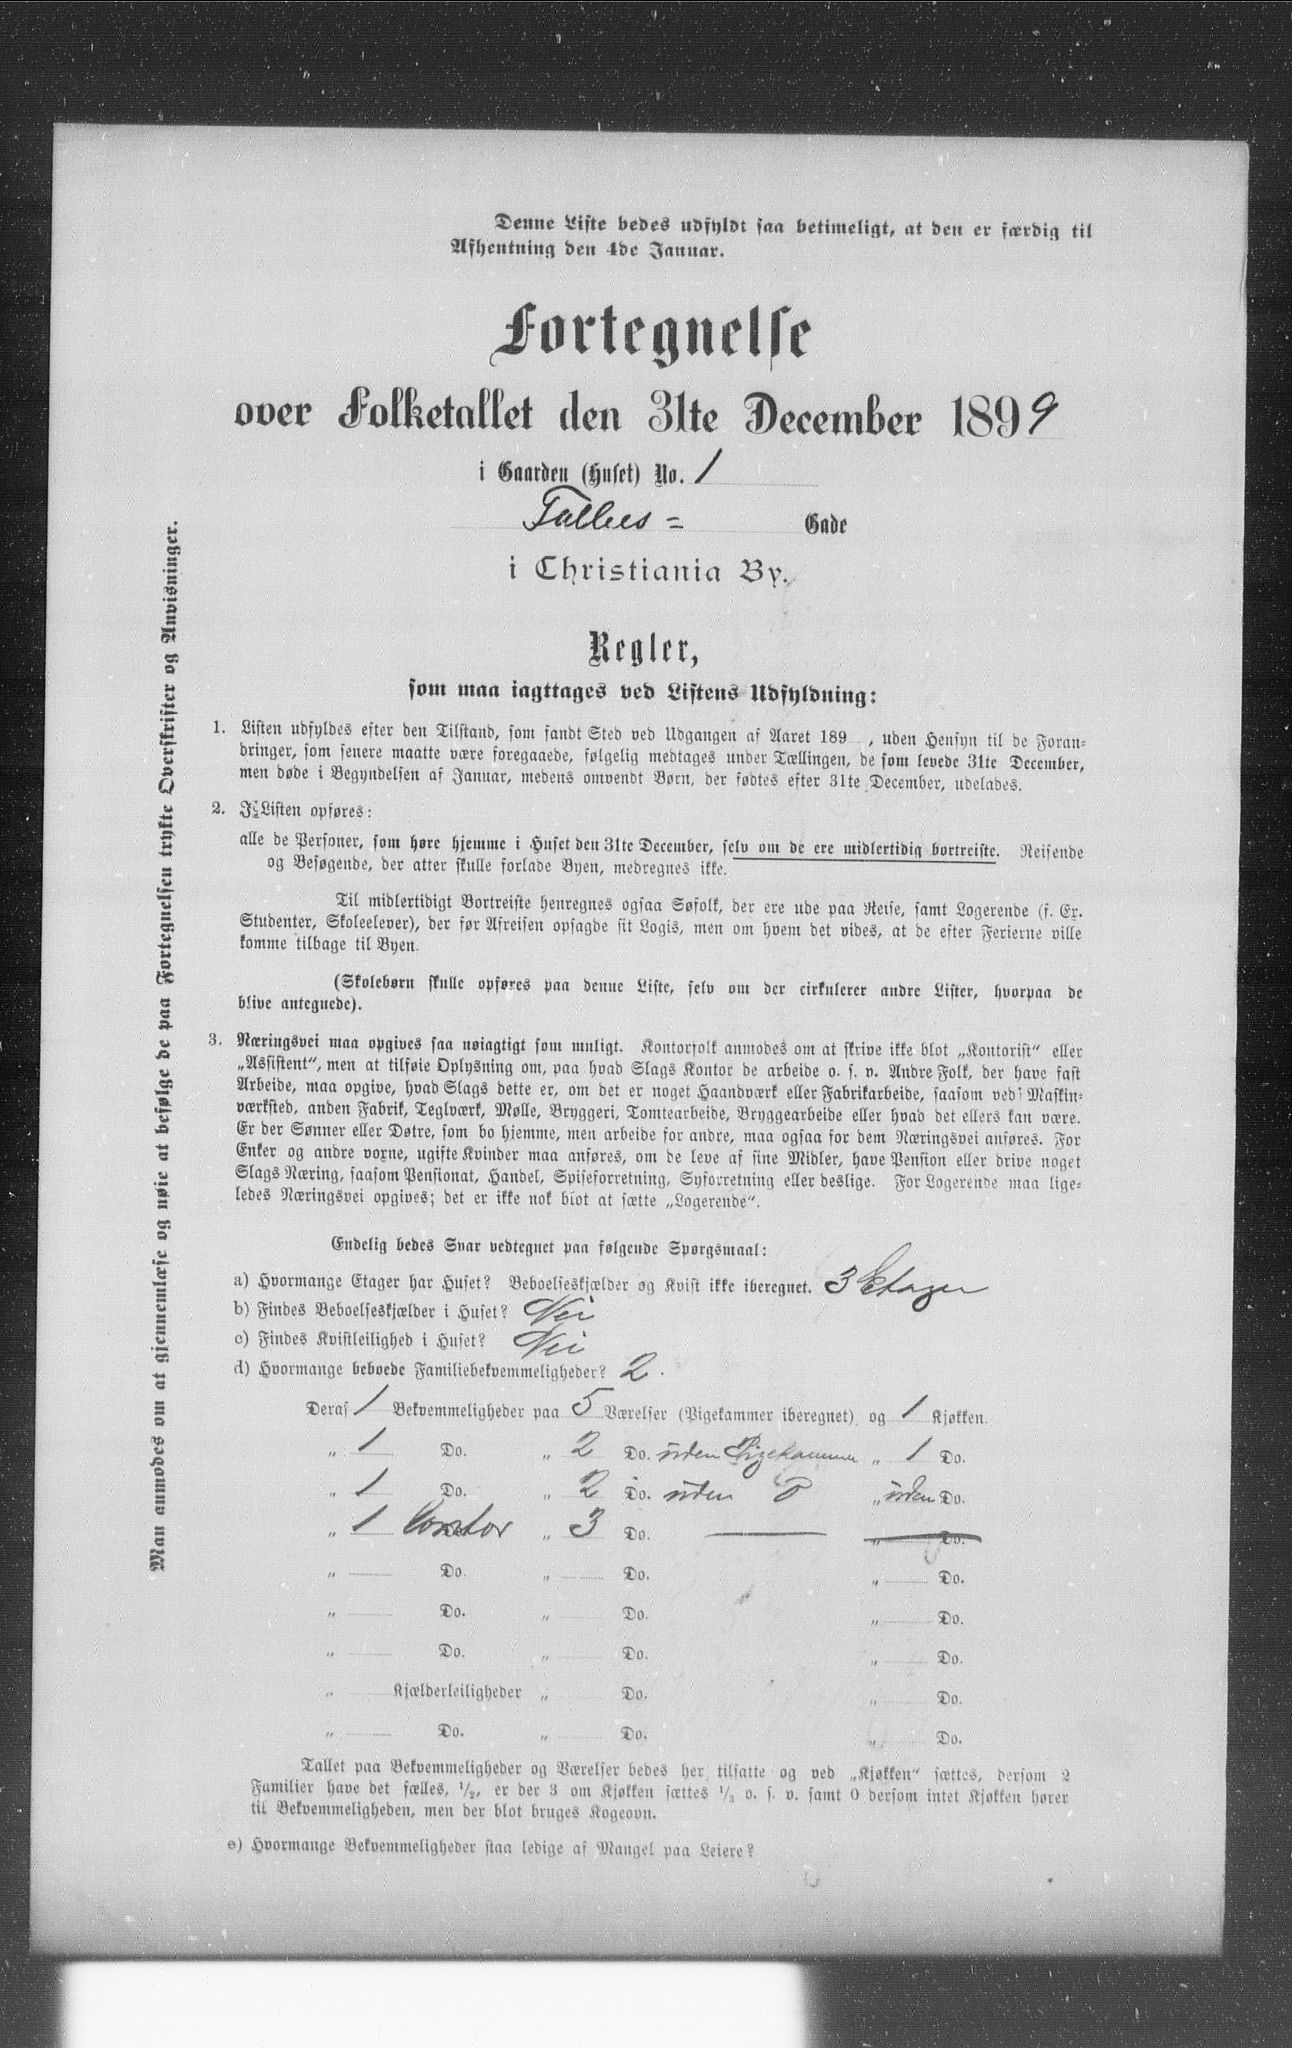 Denne Liste bedes udfyldt saa betimeligt, at den er færdig til
Afhentning den 4de Januar.
Fortegnelse
over Folketallet den 31te December 1899
i Gaarden (Huset) No. 1
Tullus = Gade
i Christiania By.
Regler,
som maa iagttages ved Listens Udfyldning:
1. Listen udfyldes efter den Tilstand, som fandt Sted ved Udgangen af Aaret 189 , uden Hensyn til de Foran-
dringer, som senere maatte være foregaaede, følgelig medtages under Tællingen, de som levede 31te December,
men døde i Begyndelsen af Januar, medens omvendt Børn, der fødtes efter 31te December, udelades.
2. I Listen opføres:
alle de Personer, som høre hjemme i Huset den 31te December, selv om de ere midlertidig bortreiste. Reisende
og Besøgende, der atter skulle forlade Byen, medregnes ikke.
Til midlertidigt Bortreiste henregnes ogsaa Søfolk, der ere ude paa Reise, samt Logerende (f. Ex.
Studenter, Skoleelever), der før Afreisen opsagde sit Logis, men om hvem det vides, at de efter Ferierne ville
komme tilbage til Byen.
(Skolebørn skulle opføres paa denne Liste, selv om der cirkulerer andre Lister, hvorpaa de
blive antegnede).
3. Næringsvei maa opgives saa nøiagtigt som muligt. Kontorfolk anmodes om at skrive ikke blot „Kontorist“ eller
„Assistent“, men at tilføie Oplysning om, paa hvad Slags Kontor de arbeide o. s. v. Andre Folk, der have fast
Arbeide, maa opgive, hvad Slags dette er, om det er noget Haandværk eller Fabrikarbeide, saasom ved Maskin-
værksted, anden Fabrik, Teglværk, Mølle, Bryggeri, Tomtearbeide, Bryggearbeide eller hvad det ellers kan være.
Er der Sønner eller Døtre, som bo hjemme, men arbeide for andre, maa ogsaa for dem Næringsvei anføres. For
Enker og andre voxne, ugifte Kvinder maa anføres, om de leve af sine Midler, have Pension eller drive noget
Slags Næring, saasom Pensionat, Handel, Spiseforretning, Syforretning eller deslige. For Logerende maa lige-
ledes Næringsvei opgives; det er ikke nok blot at sætte „Logerende“.
Endelig bedes Svar vedtegnet paa følgende Spørgsmaal:
a) Hvormange Etager har Huset? Beboelseskjælder og Kvist ikke iberegnet. 3 Etager
b) Findes Beboelseskjælder i Huset? Nei
c) Findes Kvistleilighed i Huset? Nei
d) Hvormange beboede Familiebekvemmeligheder? 2.
Deraf 1 Bekvemmeligheder paa 5 Værelser (Pigekammer iberegnet) og 1 Kjøkken.
„ 1 Do. „ 2 Do. uden Pigekammer „ 1 Do.
„ 1 Do. „ 2 Do. uden „ uden Do.
„ 1 Contor „ 3 Do. „ Do.
„ Do. „ Do. „ Do.
„ Do. „ Do. „ Do.
„ Do. „ Do. „ Do.
„ Kjælderleiligheder „ Do. „ Do.
„ Do. „ Do. „ Do.
Tallet paa Bekvemmeligheder og Værelser bedes her tilsatte og ved „Kjøkken“ sættes, dersom 2
Familier have det fælles, 1/2, er der 3 om Kjøkken sættes 1/3 o. s. v. samt 0 dersom intet Kjøkken hører
til Bekvemmeligheden, men der blot bruges Kogeovn.
e) Hvormange Bekvemmeligheder staa ledige af Mangel paa Leiere?
Man anmodes om at gjennemlæse og nøie at befølge de paa Fortegnelsen trykte Overskrifter og Anvisninger.